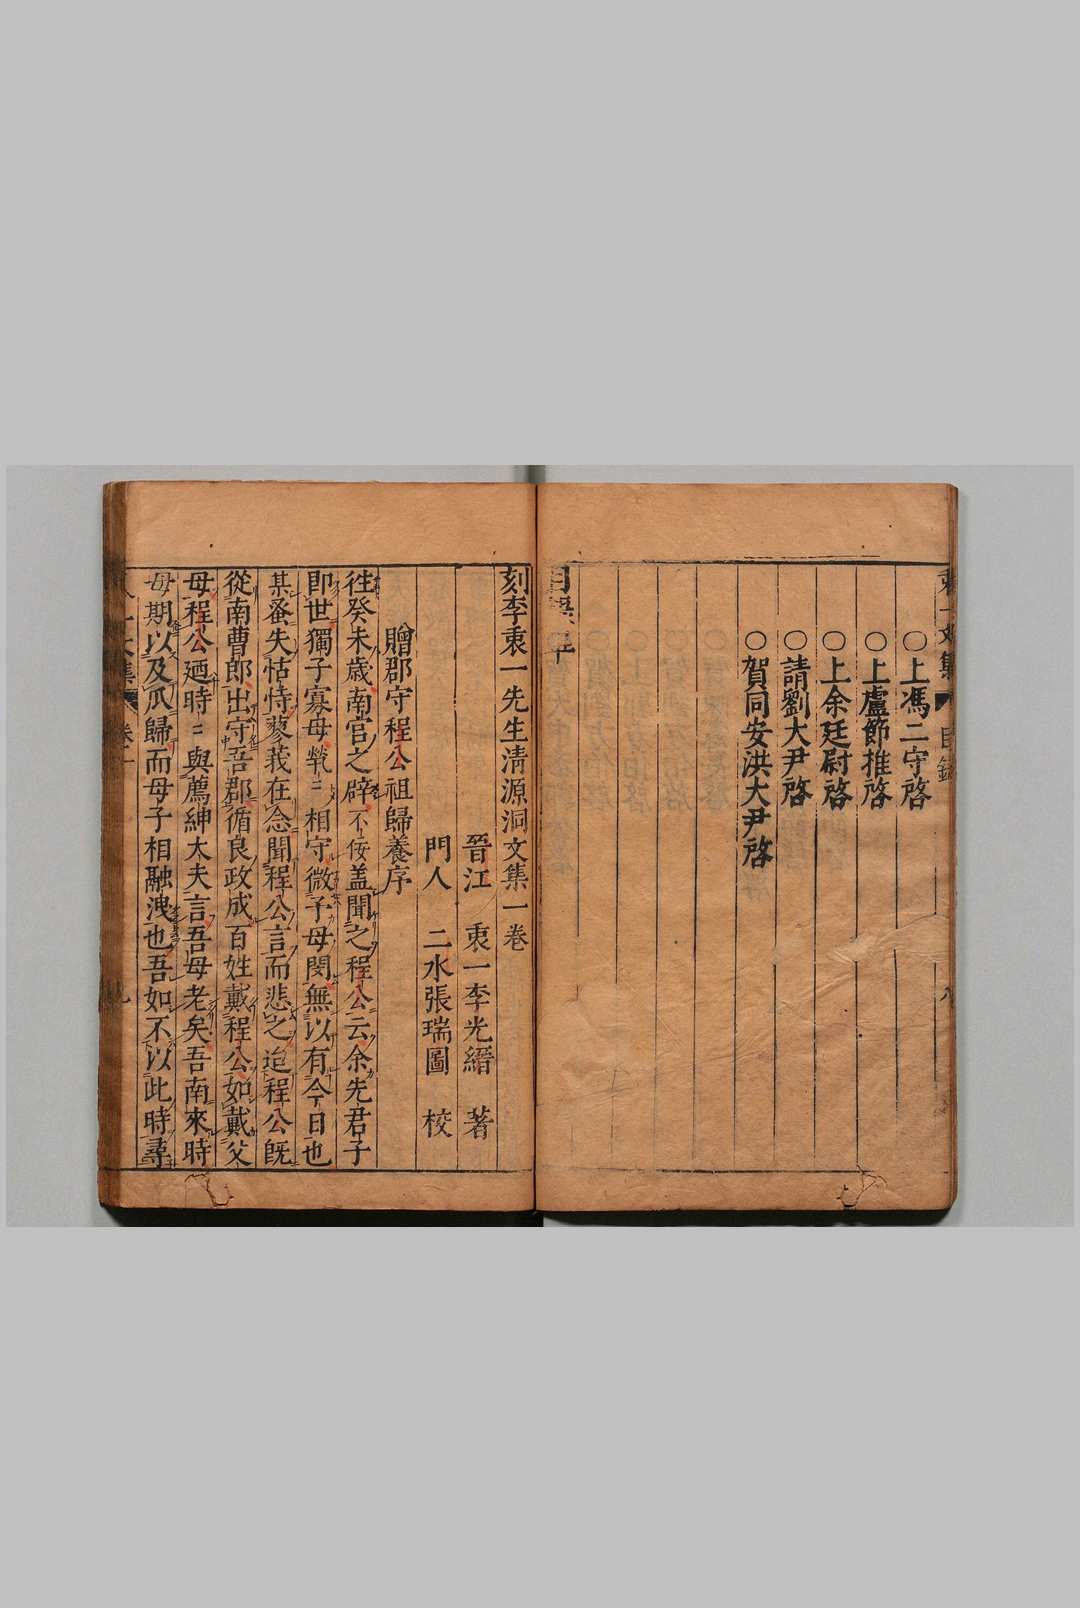 ○上馮二守啓
○上盧節推啓
○上余廷尉啓
○請劉大尹啓
○賀同安洪大尹啓
刻李衷一先生清源洞文集一卷
晉江 衷一李光縉 著
門人 二水張瑞圖 校
贈郡守程公祖歸養序
往癸未歲南宮之辟不佞盖聞之程公云余先君子
即世獨子寡母煢〻相守微子母閔無以有今日也
某蚤失怙恃蓼莪在念聞程公言而悲之迨程公旣
從南曹郎出守吾郡循良政成百姓戴程公如戴父
母程公廼時〻與薦紳大夫言吾母老矣吾南來時
母期以及瓜歸而母子相融洩也吾如不以此時尋